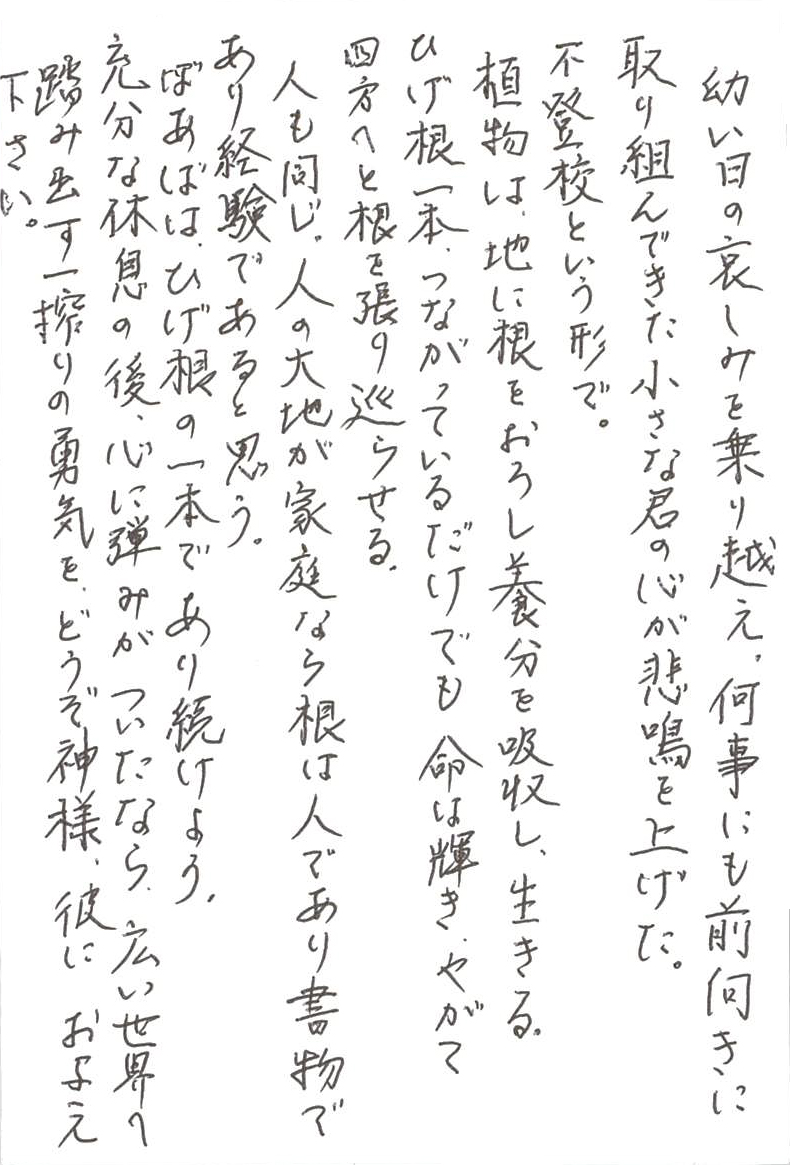 幼い日の哀しみを乗り越え、何事にも前向きに
取り組んできた小さな君の心が悲鳴を上げた。
不登校という形で。
植物は、地に根をおろし養分を吸収し、生きる。
ひげ根一本、つながっているだけでも命は輝き、やがて
四方へと根を張り巡らせる。
人も同じ。人の大地が家庭なら根は人であり書物で
あり経験であると思う。
ばあばは、ひげ根の一本であり続けよう。
充分な休息の後、心に弾みがついたなら、広い世界へ
踏み出す一搾りの勇気を、どうぞ神様、彼におよえ
下さい。